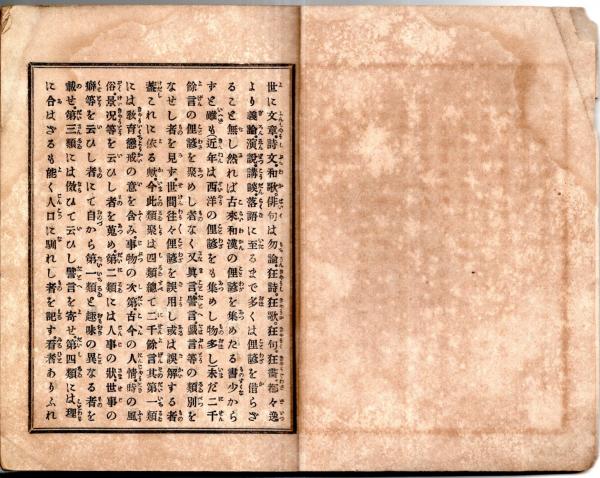 世に文章詩文和歌俳句は勿論狂詩狂歌狂句狂畵都々逸
より義論演説講談落語に至るまで多くは俚諺を借らざ
ること無し然れば古來和漢の俚諺を集めたる書少から
ずと雖も近年は西洋の俚諺をも集めし物多し未だ二千
餘言の俚諺を聚めし者なく又眞言譬言戯言等の類別を
なせし者を見ず世間往々俚諺を誤用し或は誤解する者
蓋これに依る歟今此類聚は四類總て二千餘言其第一類
には敎育懲戒の意を含み事物の次第古今の人情時の風
俗景况等を云ひし者を蒐め第二類には人事の狀世事の
癖等を云ひし者にて自から第一類と趣味の異なる者を
載せ第三類には倣ひて云ひし譬言を寄せ第四類には理
に合はざるも能く人口に馴れし者を記す看者ありふれ